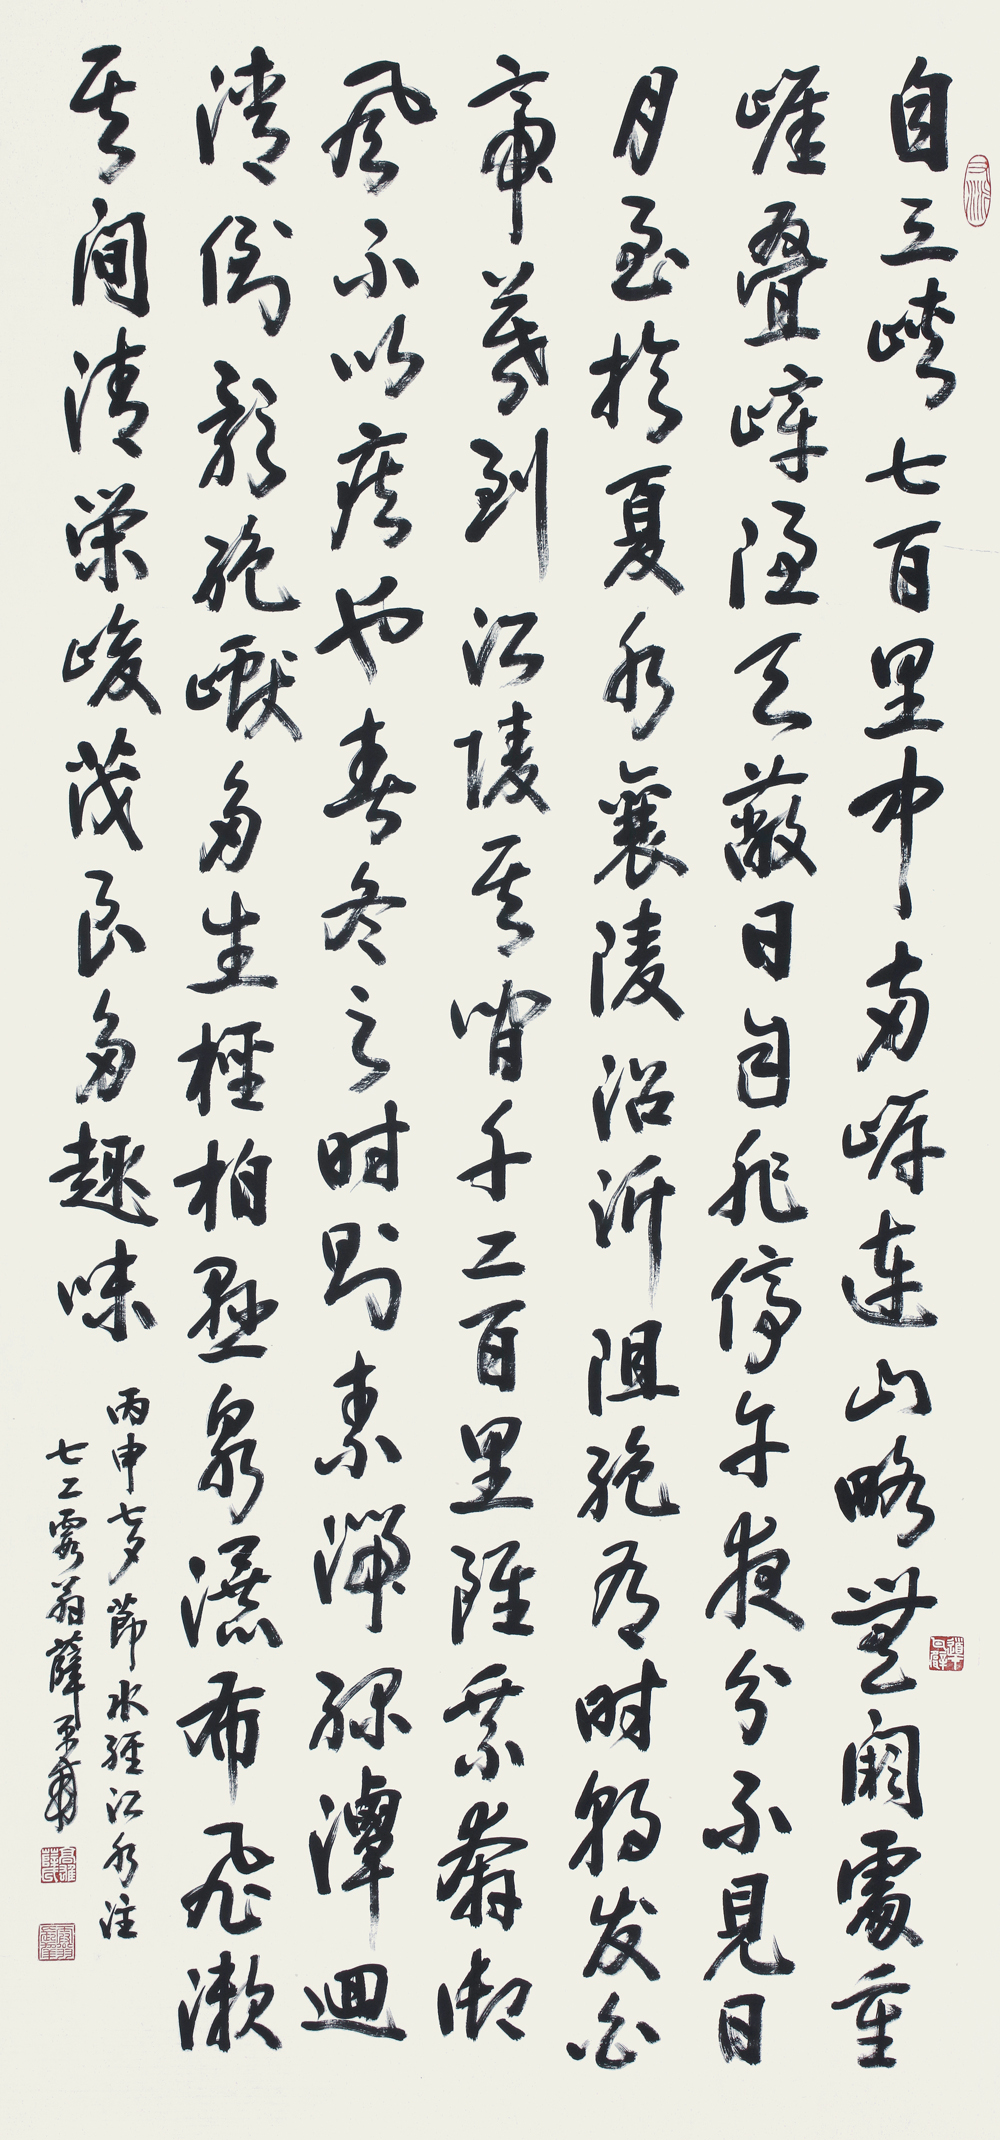 自三峽七百里中两岸連山略無闕處重
崖叠嶂隱天蔽日自非停午夜分不見日
月至於夏水襄陵沿泝阻绝有时朝发白
帝暮到江陵其间千二百里雖乘奔御
风不以疾也春冬之时则素湍绿潭迴
清倒影绝巘多生柽柏悬泉瀑布飞漱
其间清荣峻茂良多趣味
丙申七夕節水經江水注
七二翁薛